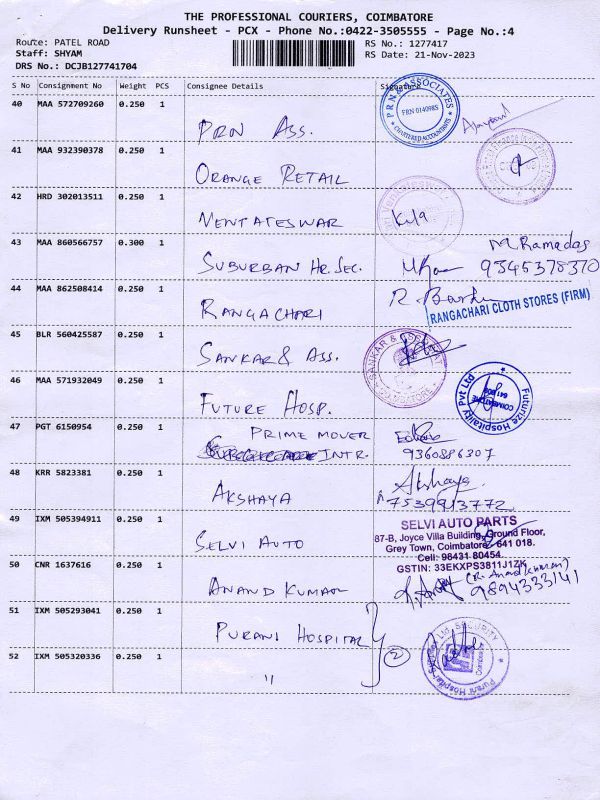 THE PROFESSIONAL COURIERS, COIMBATORE
Delivery Runsheet - PCX - Phone No.:0422-3505555 - Page No.:4
Route: PATEL ROAD
RS No.: 1277417
Staff: SHYAM
RS Date: 21-Nov-2023
DRS No.: DCJB127741704
S No Consignment No Weight PCS Consignee Details Signature
40 MAA 572709260 0.250 1
PRN ASS.
PRN & ASSOCIATES
FRN 014098S
CHARTERED ACCOUNTANTS
41 MAA 932390378 0.250 1
ORANGE RETAIL
42 HRD 302013511 0.250 1
VENTATESWAR
43 MAA 860566757 0.300 1
M. Ramadas
SUBURBAN HR. SEC.
9345378370
44 MAA 862508414 0.250 1
RANGACHARI
RANGACHARI CLOTH STORES (FIRM)
45 BLR 560425587 0.250 1
SANKAR & ASS.
SANKAR & ASSOCIAT
COIMBATORE
46 MAA 571932049 0.250 1
FUTURE HOSP.
Futurize Hospitality Pvt Ltd
COIMBATORE
47 PGT 6150954 0.250 1
PRIME MOVER
INTR.
9360886307
48 KRR 5823381 0.250 1
Akshaya
AKSHAYA
7539913772
49 IXM 505394911 0.250 1
SELVI AUTO
SELVI AUTO PARTS
87-B, Joyce Villa Building, Ground Floor,
Grey Town, Coimbatore - 641 018.
Cell: 98431 80454
GSTIN: 33EKXPS3811J1ZK
50 CNR 1637616 0.250 1
ANAND KUMAR
9894333141
51 IXM 505293041 0.250 1
PURANI HOSPITAL
2
52 IXM 505320336 0.250 1
"